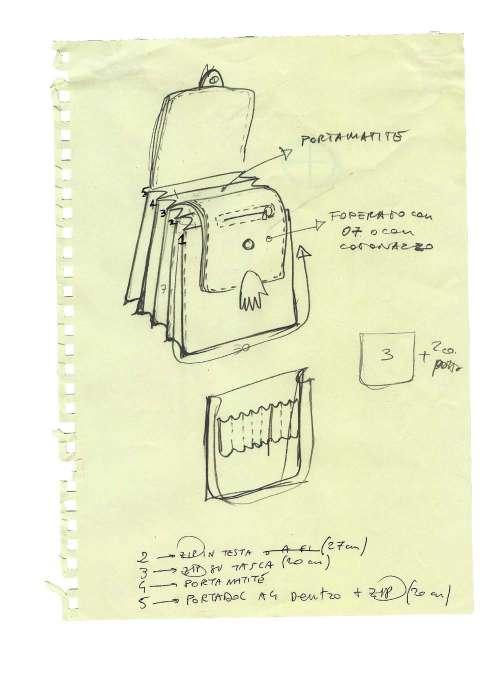 PORTAMATITE
5
4
3
2
1
FODERATO con
07 o con
COTONAZZO
7
30
3
+ 2 co.
porta
2 → ZIP IN TESTA (27cm)
3 → ZIP SU TASCA (20 cm)
4 → PORTA MATITE
5 → PORTADOC A4 DENTRO + ZIP (20 cm)